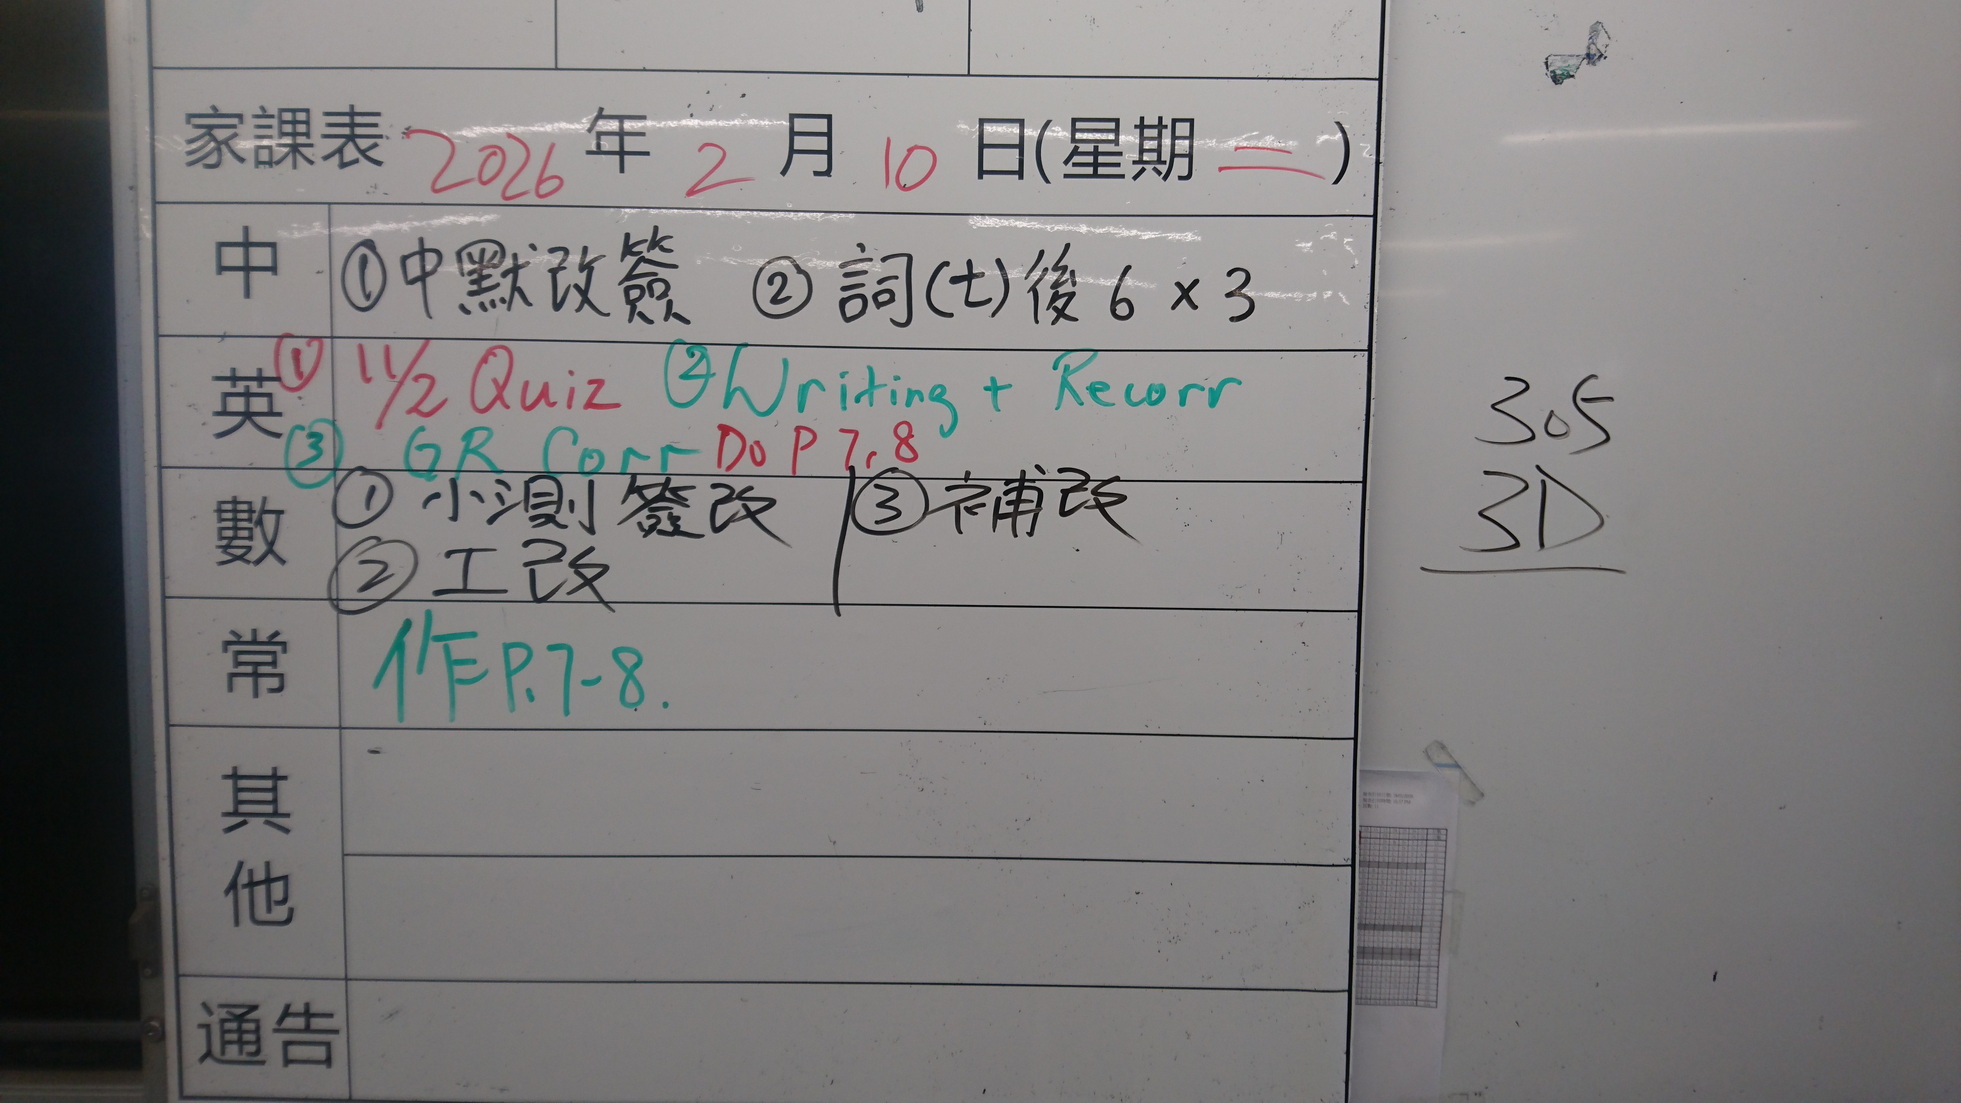 家課表 2026 年 2 月 10 日(星期 二 )
中 ①中默改簽 ② 詞(七)後 6 x 3
英 ① 11/2 Quiz ②Writing + Recorr
③ GR Corr Do P 7, 8
數 ① 小測簽改 ③補改
② 工改
常 作P.7-8.
其他
通告
305
3D